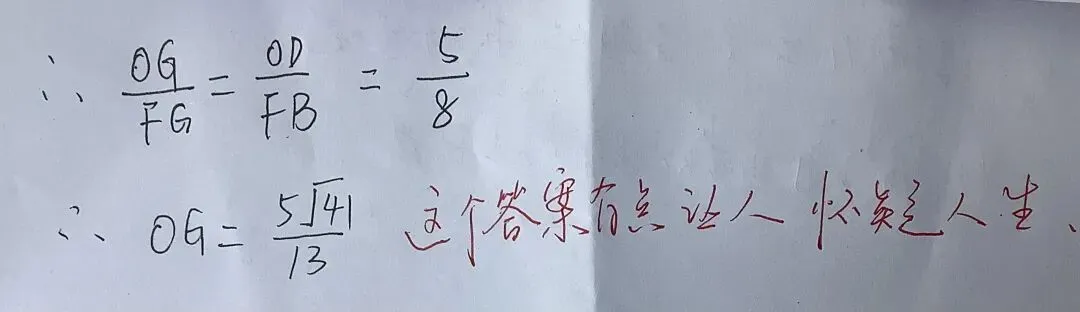 ∴ OG/FG = OD/FB = 5/8
∴ OG = 5√41/13 这个答案有点让人怀疑人生、